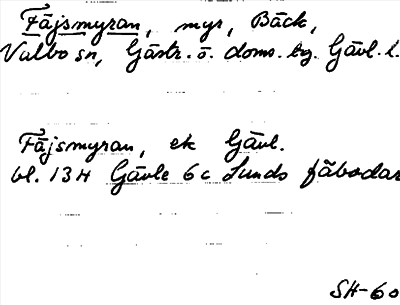 Fäjsmyran, myr, Bäck,
Valbo sn, Gästr. ö. doms. bg. Gävl. l.
Fäjsmyran, ek Gävl.
bl. 13H Gävle 6c Lunds fäbodar
SH-60